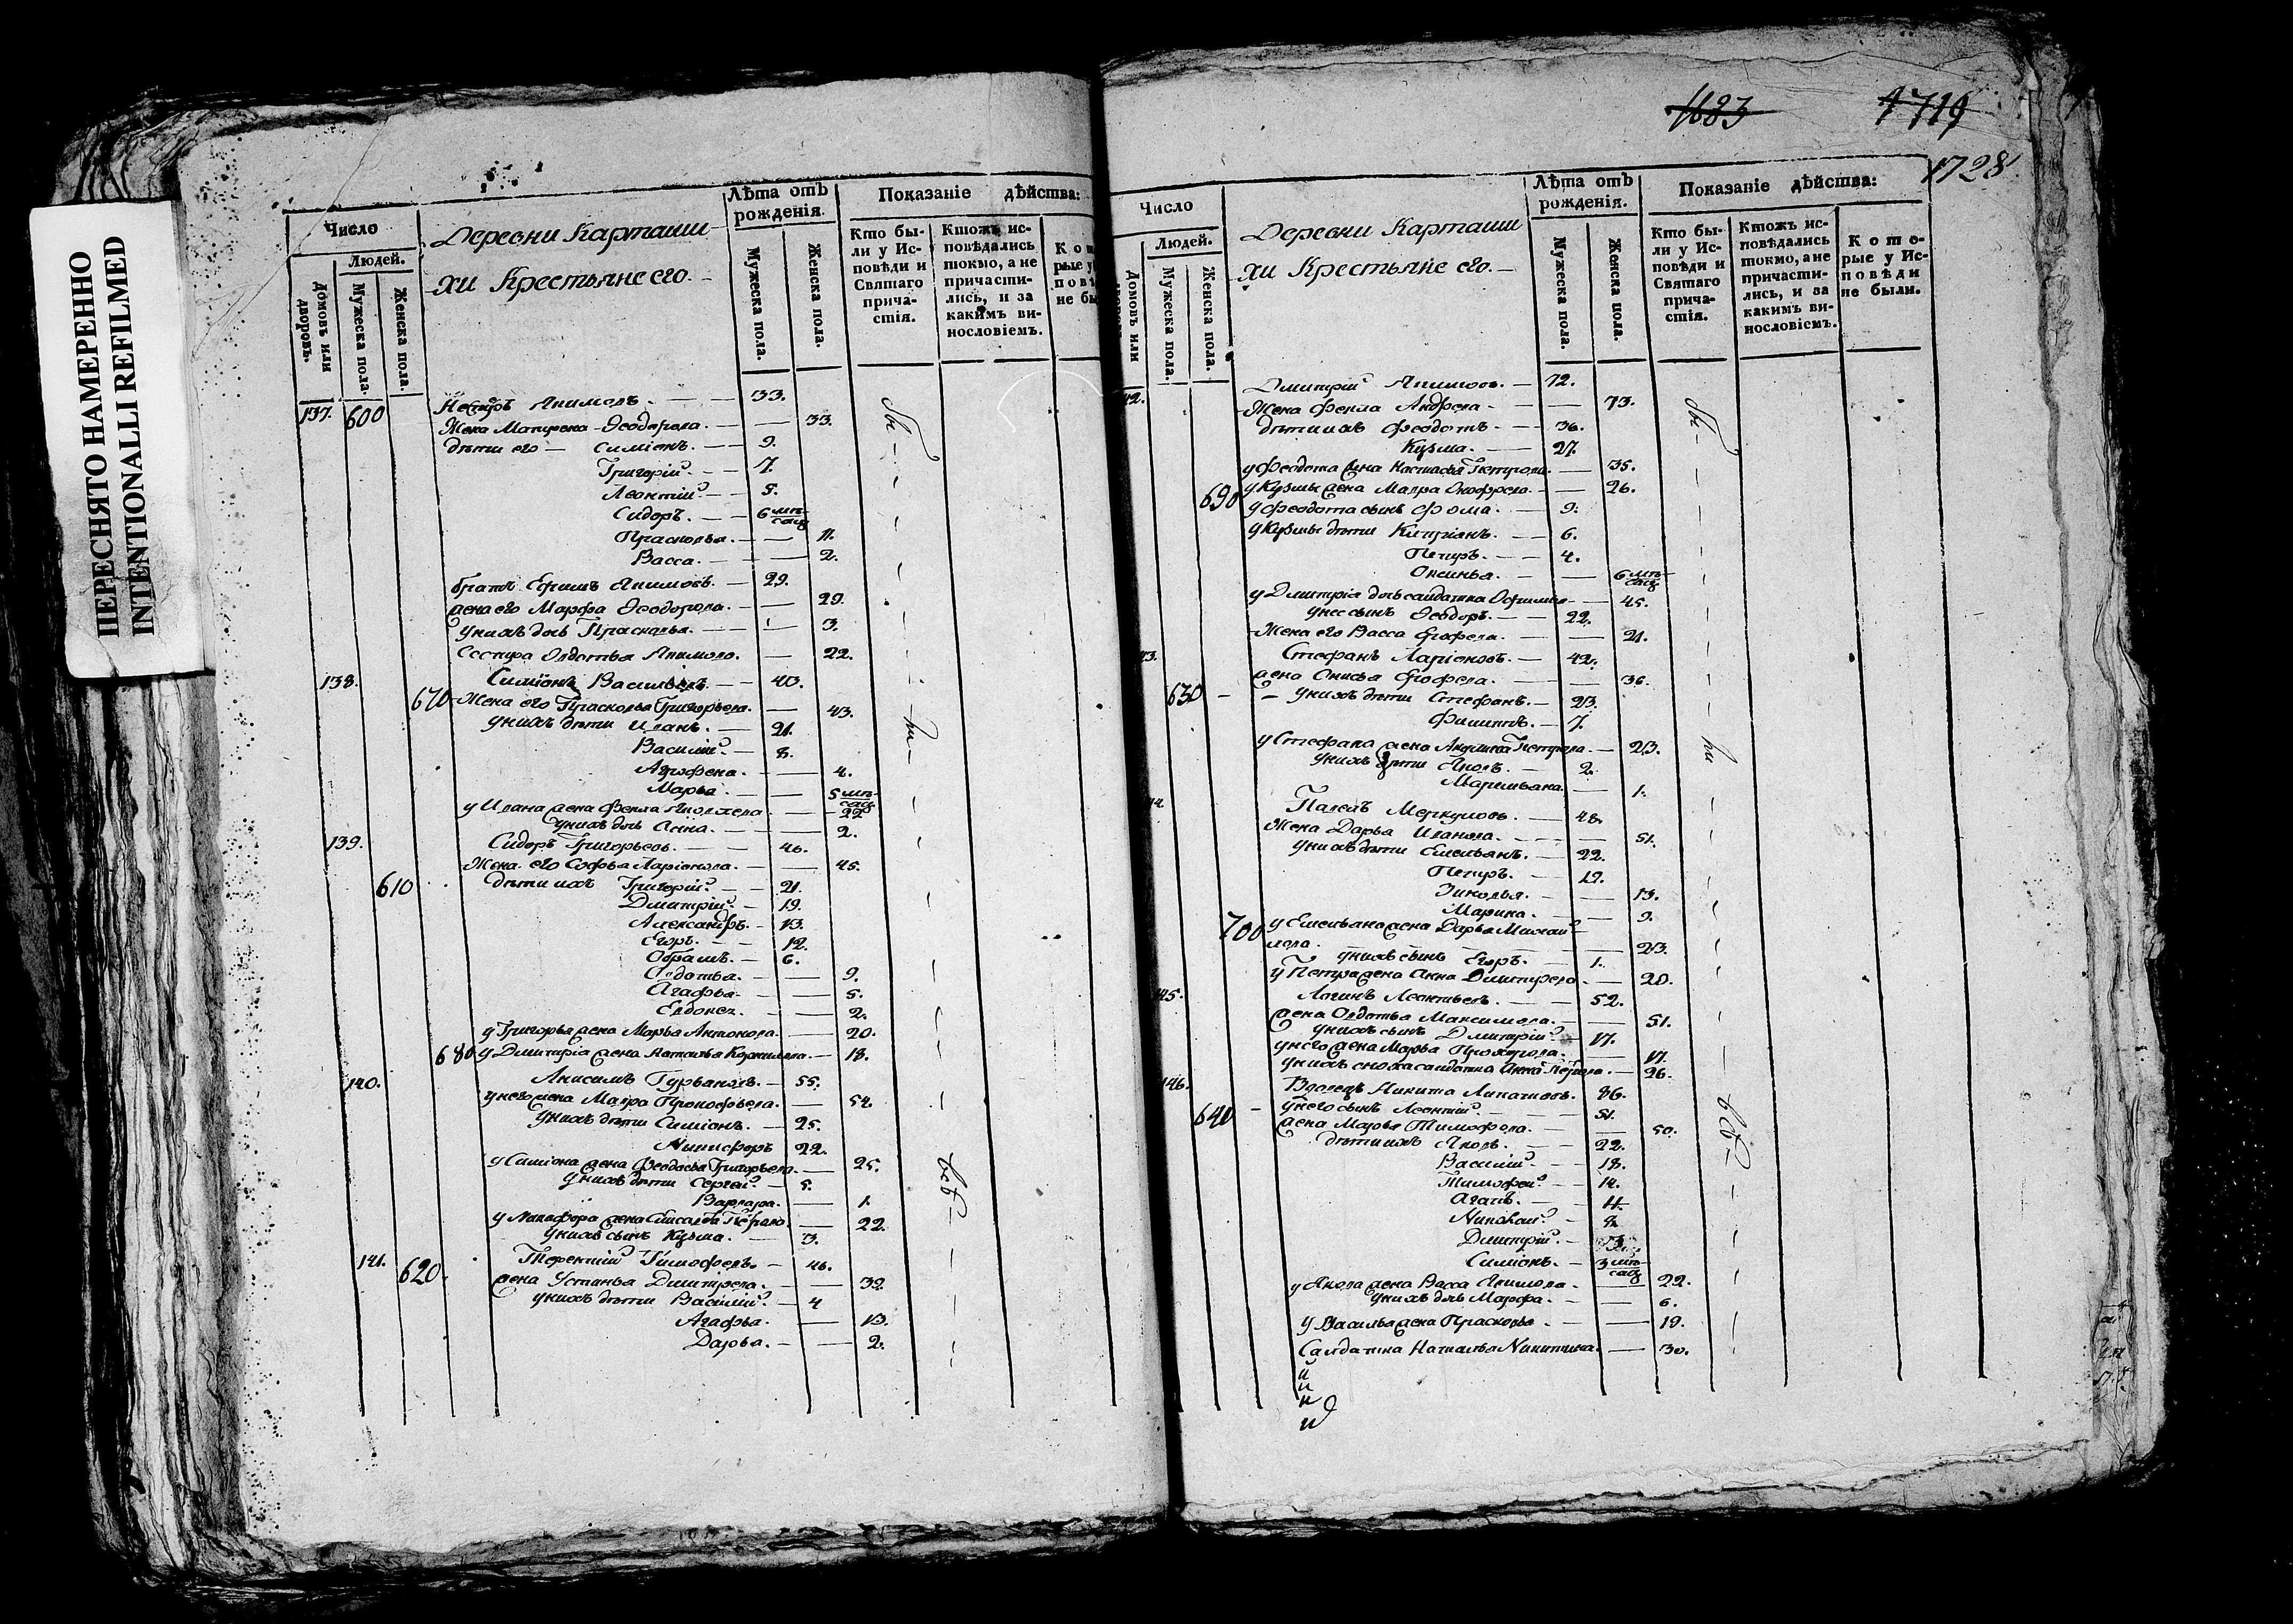 ПЕРЕСНЯТО НАМЕРЕННО
INTENTIONALLI REFILMED
Число
Людей.
Домовъ или дворовъ.
Мужеска пола.
Женска пола.
Деревни Карташи-
хи Крестьяне его. —
Лѣта отъ рожденія.
Мужеска пола.
Женска пола.
Показаніе дѣйства:
Кто бы-
ли у Ис-
повѣди и
Святаго
прича-
стія.
Ктожъ ис-
повѣдались
токмо, а не
причасти-
лись, и за
какимъ ви-
нословіемъ.
137. 600 Несторъ Якимовъ. — 33.
Жена Матрена Ѳеодорова. — 33.
дѣти его — Симіонъ. — 9.
Григорій. — 7.
Леонтій. — 5.
Сидоръ. — 6 мѣ-сяц
Прасковья. — 11.
Васса. — 2.
братъ Ефимъ Якимовъ. — 29.
жена его Марфа Ѳеодорова. — 29.
у нихъ дочь Прасковья. — 3.
Сестра Овдотья Якимова. — 22.
138. Симіонъ Васильевъ. — 43.
670 Жена его Прасковья Григорьева. — 43.
у нихъ дѣти Иванъ. — 21.
Василій. — 8.
Агрофена. — 4.
Марья. — 5 мѣ-сяц
у Ивана жена Фекла Яковлева — 22
у нихъ дочь Анна. — 2.
139. Сидоръ Григорьевъ. — 46.
Жена его Софья Ларіонова. — 45.
610 дѣти ихъ Григорій. — 21.
Дмитрій. — 19.
Александръ. — 13.
Егоръ. — 12.
Обрамъ. — 6.
Овдотья. — 9.
Агафья. — 5.
Евдокея. — 2.
у Григорья жена Марья Антонова. — 20.
680 у Дмитрія жена Наталья Корнилова. — 18.
140. Анисимъ Гурьяновъ. — 55.
у него жена Мавра Прокофьева. — 54.
у нихъ дѣти Симіонъ. — 25.
Никифоръ 22.
у Симіона жена Феодосья Григорьева. — 25.
у нихъ дѣти Сергей. — 5.
Варвара. — 1.
у Никифора жена — 22.
у нихъ сынъ Кузма. — 3.
141. 620. Терентій Тимофеевъ. — 46.
жена Устинья Дмитрева. — 32.
у нихъ дѣти Василій. — 4
Агафья. — 13.
Дарья. — 2.
1683 1719
1728
Число
Людей.
Домовъ или
Мужеска пола.
Женска пола.
Деревни Карташи
хи Крестьяне его. —
Лѣта отъ рожденія.
Мужеска пола.
Женска пола.
Показаніе дѣйства:
Кто бы-
ли у Ис-
повѣди и
Святаго
прича-
стія.
Ктожъ ис-
повѣдались
токмо, а не
причасти-
лись, и за
какимъ ви-
нословіемъ.
К о т о-
рые у Ис-
п о в ѣ д и
не были.
Дмитрій Якимовъ. — 72.
Жена Фекла Андреева — 73.
дѣти ихъ Феодотъ — 36.
Кузма. — 27.
у Феодота жена Настасья Петрова. — 35.
690 у Кузмы жена Мавра Онофреева. — 26.
у Феодота сынъ Фома. — 9.
у Кузмы дѣти Кипріянъ. — 6.
Петръ. — 4.
Оксинья. — 6 мѣ-сяц
у Дмитрія дочь салдатка — 45.
у нее сынъ Ѳеодоръ. — 22.
Жена его Васса Ерофеева. — 21.
Стефанъ Ларіоновъ. — 42.
630 жена Ерофеева. — 36.
у нихъ дѣти Стефанъ. — 23.
Филиппъ. — 7.
у Стефана жена Акулина Петрова. — 23.
у нихъ дѣти Яковъ. — 2.
Маримьяна. — 1.
Павелъ Меркуловъ. — 48.
Жена Дарья Иванова. — 51.
у нихъ дѣти Емельянъ. — 22.
Петръ. — 19.
Зиновья. — 13.
Марина. — 9.
700 у Емельяна жена Дарья Михай-
лова. — 23.
у нихъ сынъ Егоръ. — 1.
у Петра жена Анна Дмитрева. — 20.
145. Логинъ Леонтьевъ. — 52.
жена Овдотья Максимова. — 51.
у нихъ сынъ Дмитрій. — 17.
у него жена Марья — 17.
у нихъ сноха салдатка Анна — 26.
146. Вдовецъ Никита 86.
640 у него сынъ Леонтій. — 51.
жена Марья Тимофеева. — 50.
дѣти ихъ Яковъ. — 22.
Василій. — 18.
Тимофей. — 14.
Агапъ. — 11.
Николай. — 8.
Дмитрій. — 3.
Симіонъ. — 3 мѣ-сяц
у Якова жена Васса Якимова. — 22.
у нихъ дочь Марфа. — 6.
у Василья жена Прасковья. — 19.
Салдатка Наталья Никитина. — 30.